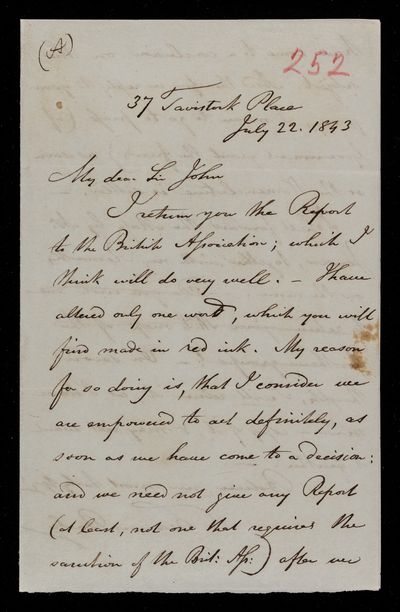 (A)
252
37 Tavistock Place
July 22. 1843
My dear Sir John
I return you the Report
to the British Association; which I
think will do very well. – I have
altered only one word, which you will
find made in red ink. My reason
for so doing is, that I consider we
are empowered to act definitely, as
soon as we have come to a decision:
and we need not give any Report
(at least, not one that requires the
sanction of the Brit: As:) after we